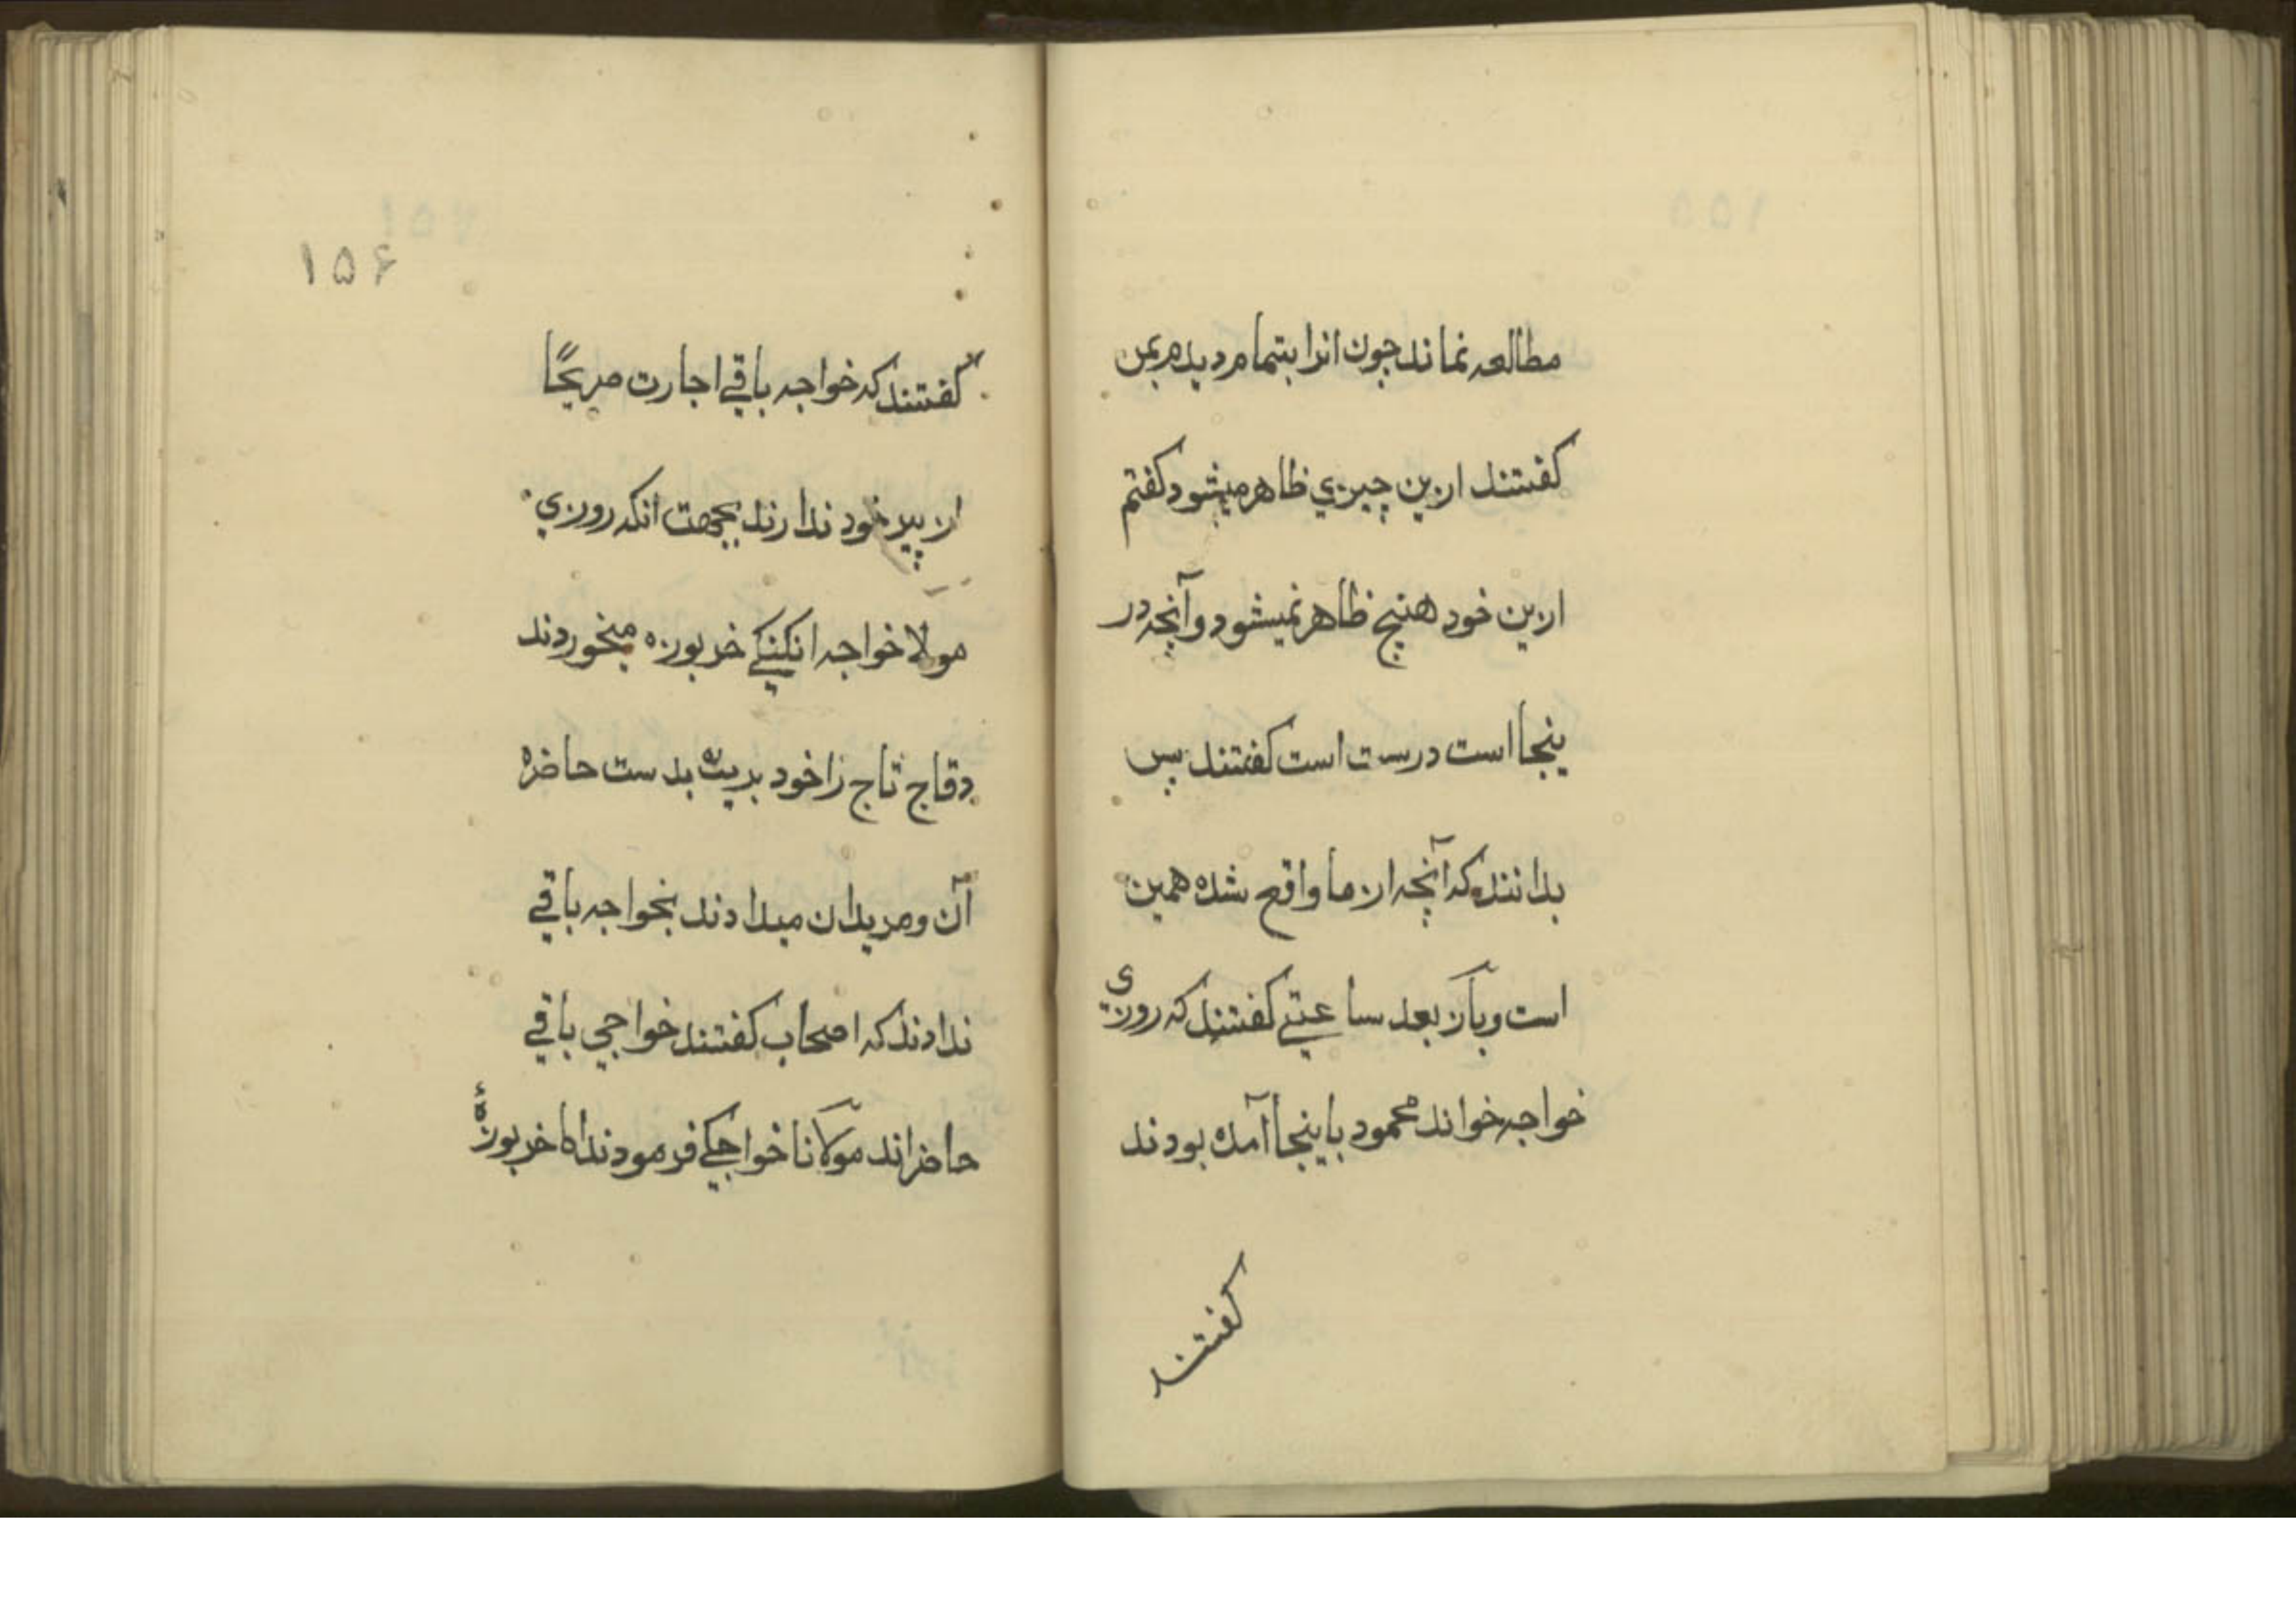 مطالعه نماند چون انرا بتمام ديدم بمن
کفتند ازين چيزي ظاهر ميشود کفتم
ازين خود هيچ ظاهر نميشود و آنچه در
ينجا است درست است کفتند پس
بدانند که آنچه از ما واقع شده همين
است و بآز بعد ساعتي کفتند که روزي
خواجه خواند محمود باينجا آمده بودند
کفتند
۱۵۶
کفتند که خواجه باقي اجازت صريحًا
از پير خود ندارند بجهت انکه روزي
مولا خواجه انکنکي خربوزه ميخوردند
قاچ تاچ را خود بريده بدست حاضره
آن و مريدان ميدادند بخواجه باقي
ندادند که اصحاب کفتند خواجي باقي
حاضراند مولانا خواجکي فرمودند اما خربوزۀ